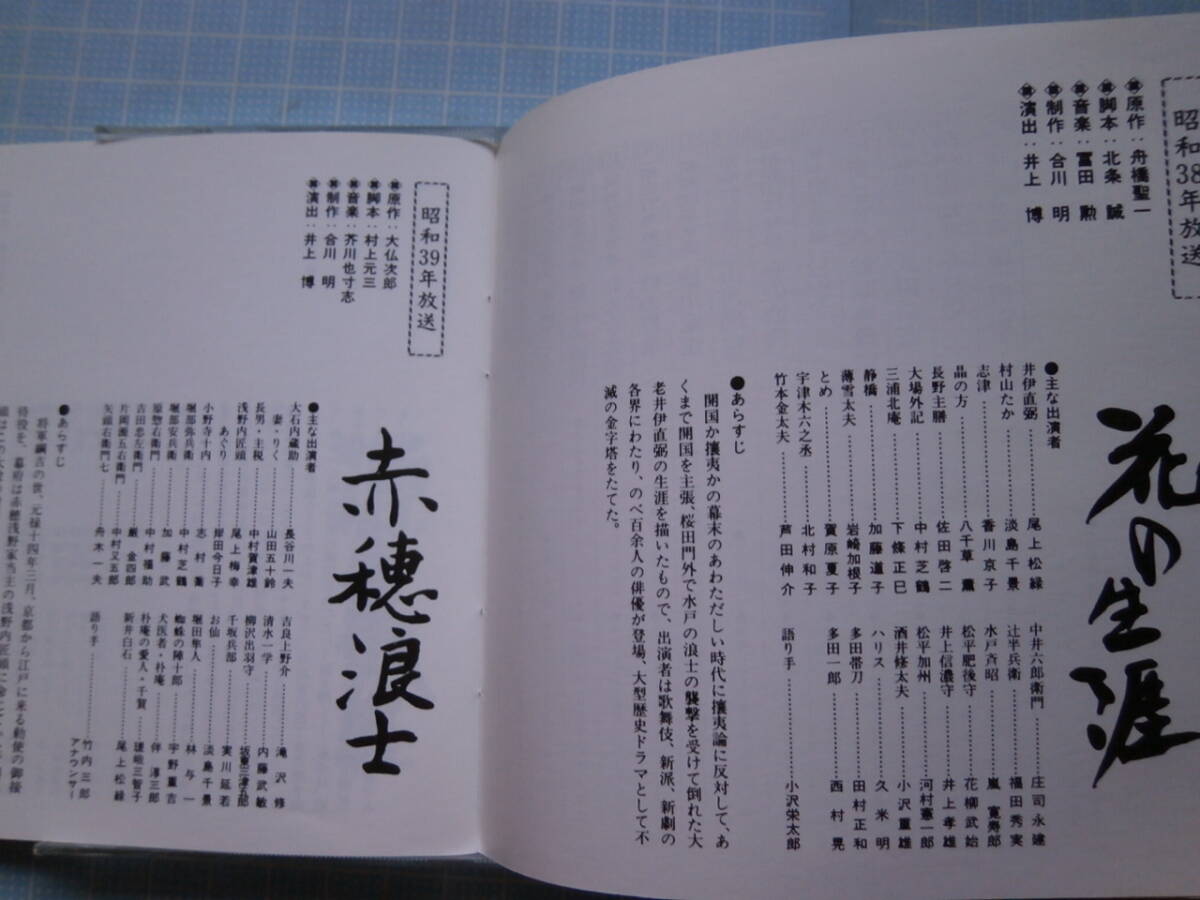 昭和38年放送
原作：舟橋聖一
脚本：北条 誠
音楽：冨田 勲
制作：合川 明
演出：井上 博
花の生涯
●主な出演者
井伊直弼………尾上松緑
村山たか………淡島千景
志津………香川京子
晶の方………八千草 薫
長野主膳………佐田啓二
大場外記………中村芝鶴
三浦北庵………下條正巳
静橋………加藤道子
薄雪太夫………岩崎加根子
とめ………賀原夏子
宇津木六之丞………北村和子
竹本金太夫………芦田伸介
中井六郎衛門………庄司永建
辻半兵衛………福田秀実
水戸斉昭………嵐 寛寿郎
松平肥後守………花柳武始
井上信濃守………井上孝雄
松平加州………河村憲一郎
酒井修太夫………小沢重雄
ハリス………久米 明
多田帯刀………田村正和
多田一郎………西村 晃
語り手………小沢栄太郎
●あらすじ
開国か攘夷かの幕末のあわただしい時代に攘夷論に反対して、あ
くまで開国を主張、桜田門外で水戸の浪士の襲撃を受けて倒れた大
老井伊直弼の生涯を描いたもので、出演者は歌舞伎、新派、新劇の
各界にわたり、のべ百余人の俳優が登場、大型歴史ドラマとして不
滅の金字塔をたてた。
昭和39年放送
原作：大仏次郎
脚本：村上元三
音楽：芥川也寸志
制作：合川 明
演出：井上 博
赤穂浪士
●主な出演者
大石内蔵助………長谷川一夫
妻・りく………山田五十鈴
長男・主税………中村賀津雄
浅野内匠頭………尾上梅幸
あぐり………岸田今日子
小野寺十内………志村 喬
堀部弥兵衛………中村芝鶴
堀部安兵衛………加藤 武
原惣右衛門………中村福助
吉田忠左衛門………巌 金四郎
片岡源五右衛門………中村又五郎
矢頭右衛門七………舟木一夫
吉良上野介………滝沢 修
清水一学………内藤武敏
柳沢出羽守………坂東三津五郎
千坂兵部………実川延若
お仙………淡島千景
堀田隼人………林 与一
蜘蛛の陣十郎………宇野重吉
犬医者・朴庵………伴 淳三郎
朴庵の愛人・千賀………瑳峨三智子
新井白石………尾上松緑
語り手………竹内三郎
アナウンサー
●あらすじ
将軍綱吉の世、元禄十四年三月、京都から江戸に来る勅使の御接
待役を、幕府は赤穂浅野家当主の浅野内匠頭に命じて